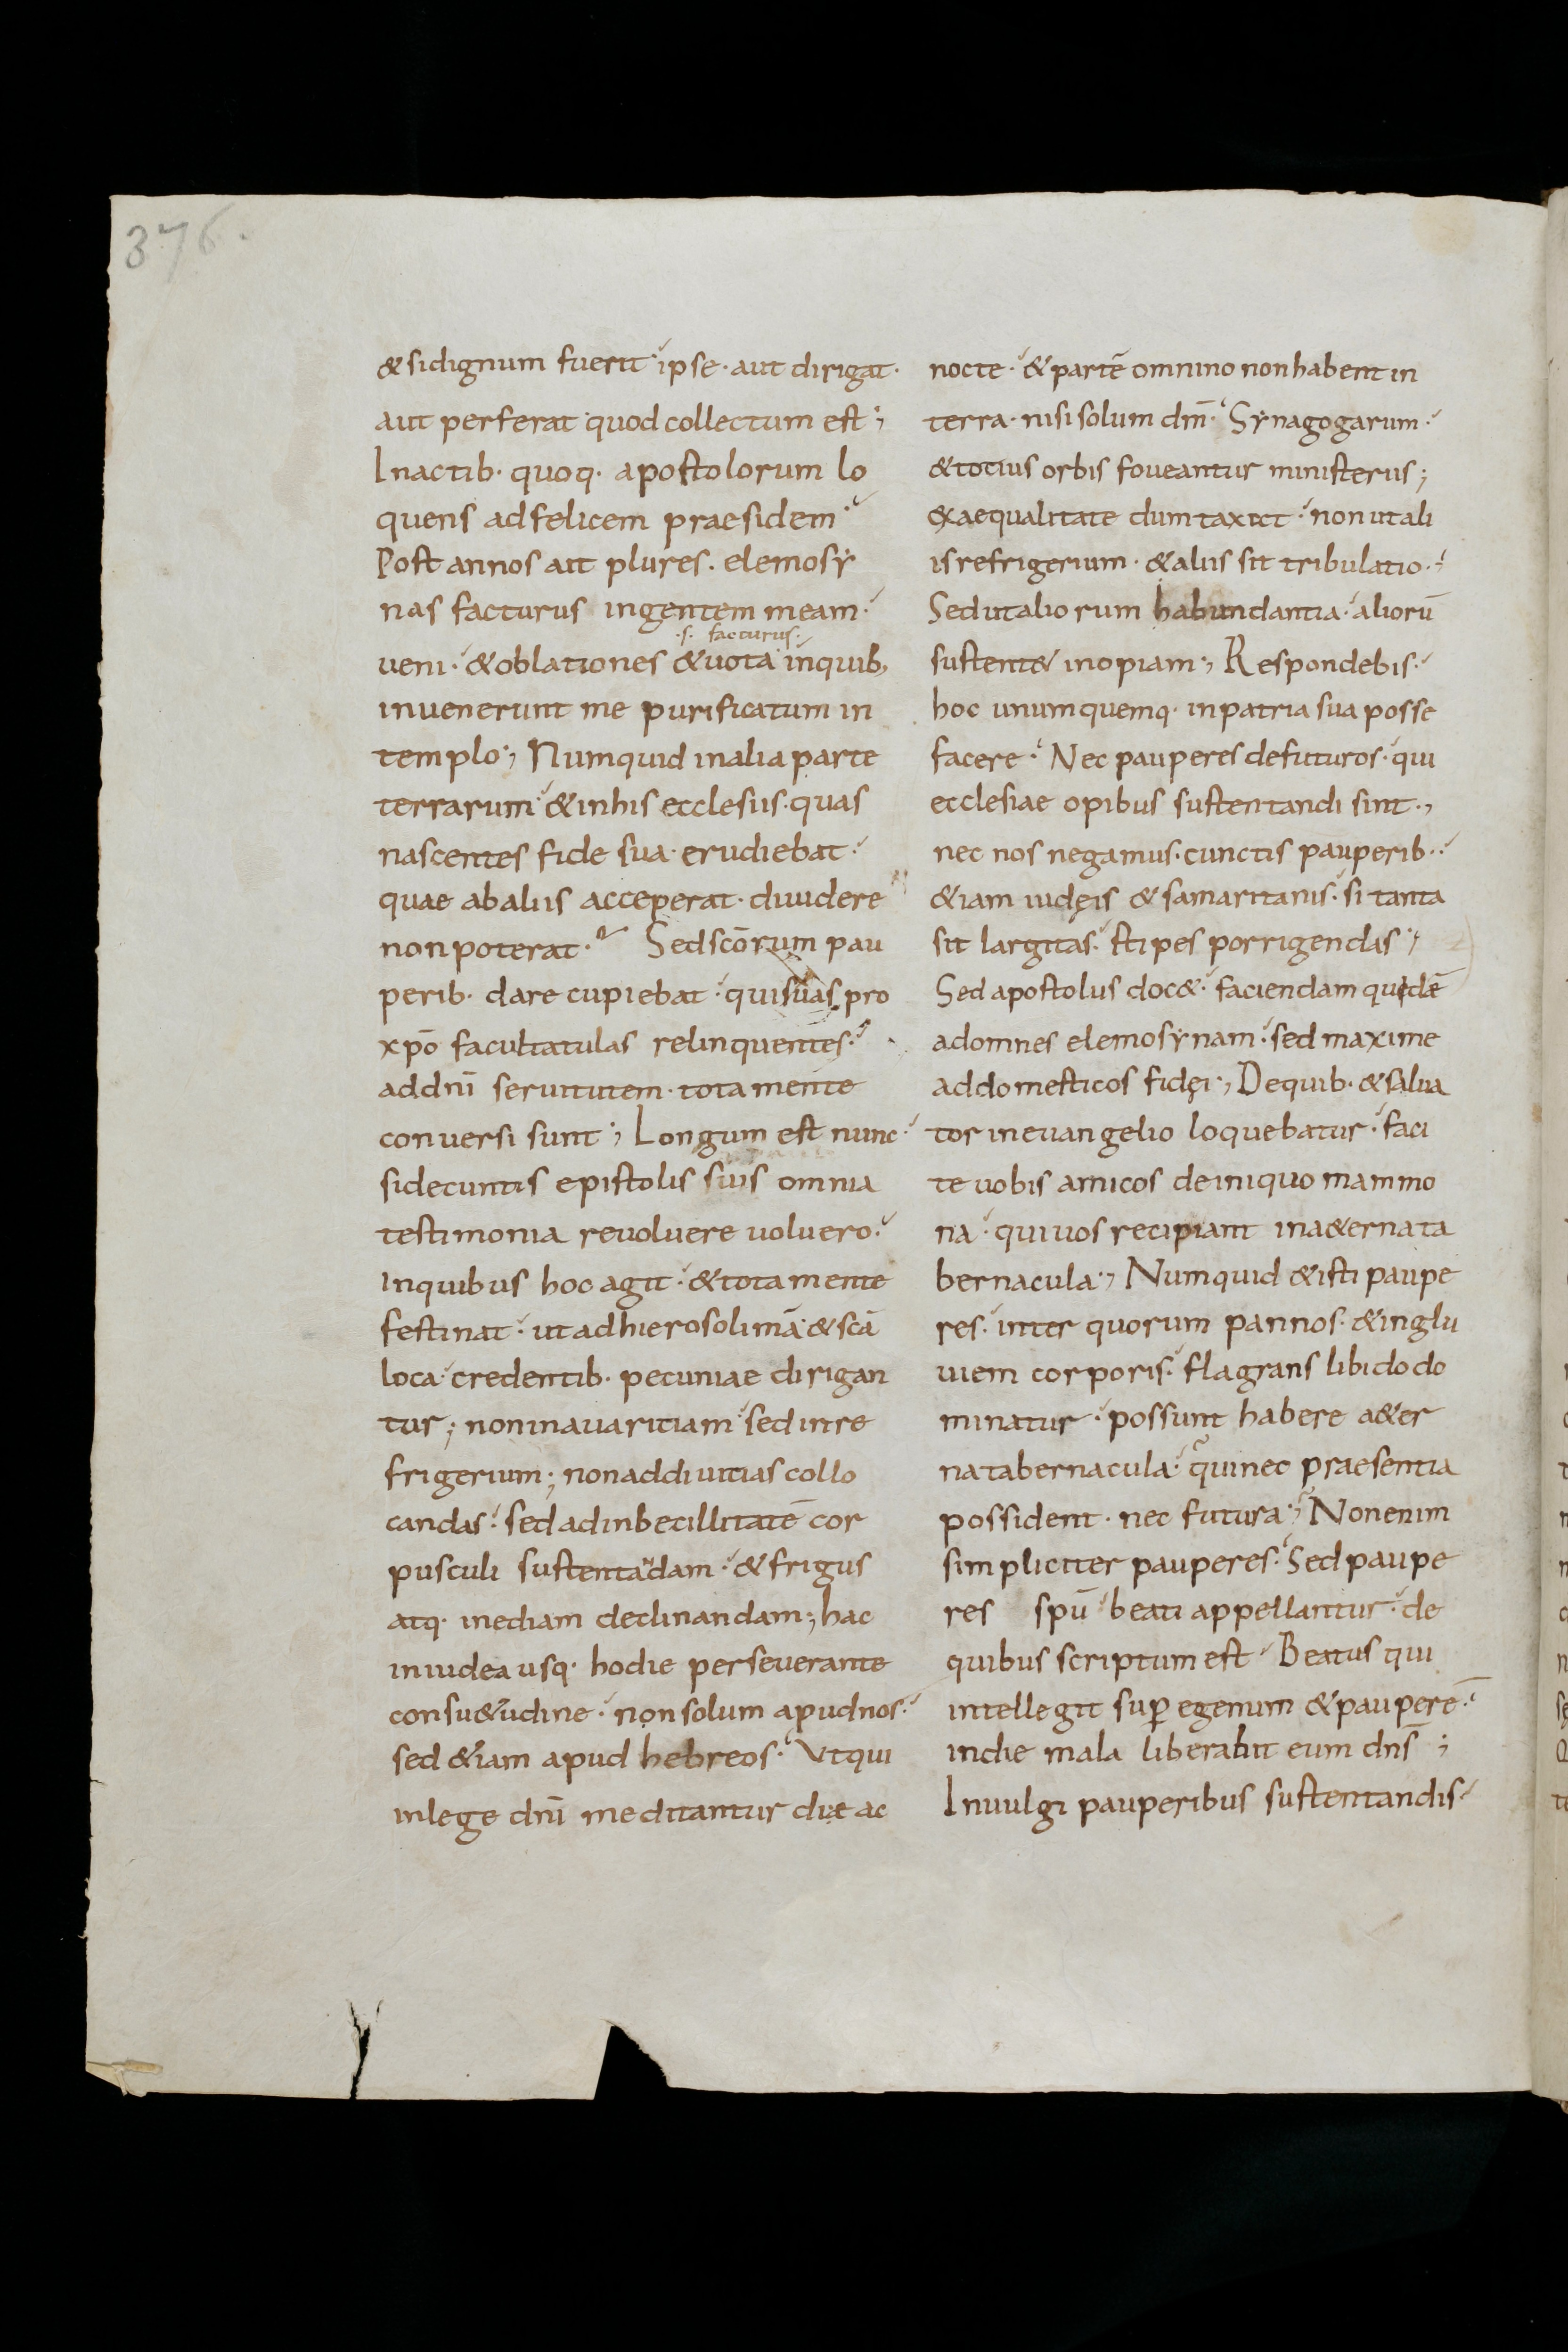 376.
& sidignum fuerit ipse · aut dirigat ·
aut perferat quod collectum est ;
Inactib· quoq· apostolorum lo
quens adfelicem praesidem ·
Post annos ait plures · elemosy
nas facturus ingentem meam ·
·s· facturus·
ueni · & oblationes & uota inquib·
inuenerunt me purificatum in
templo ; Numquid inalia parte
terrarum · & inhis ecclesiis · quas
nascentes fide sua · erudiebat ·
quae abaliis acceperat · diuidere
nonpoterat · Sed scōrum pau
perib· dare cupiebat · qui suas pro
xpō facultatulas relinquentes ·
addnī seruitutem · tota mente
conuersi sunt ; Longum est nunc ·
sidecunctis epistolis suis omnia
testimonia reuoluere uoluero ·
inquibus hoc agit · & tota mente
festinat · ut adhierosolimā · & scā
loca credentib· pecuniae dirigan
tur ; noninauaritiam sed inre
frigerium ; nonaddiuitias collo
candas · sed adinbecillitatē cor
pusculi sustentādam · & frigus
atq· inediam declinandam ; hac
iniudea usq· hodie perseuerante
consu&udine · non solum apudnos ·
sed &iam apud hebreos · Vtqui
inlege dnī meditantur die ac
nocte · & partē omnino nonhabent in
terra · nisi solum dm̄ · Synagogarum ·
& totius orbis foueantur ministeriis ;
exaequalitate dumtaxat · non ut ali
is refrigerium · & aliis sit tribulatio ·
Sed ut aliorum habundantia · aliorū
sustent& inopiam ; Respondebis ·
hoc unumquemq· inpatria sua posse
facere · Nec pauperes defuturos · qui
ecclesiae opibus sustentandi sint ·,
nec nos negamus · cunctis pauperib· ·
&iam iudęis & samaritanis · si tanta
sit largitas · stipes porrigendas ·,
Sed apostolus doc& · faciendam quidē
adomnes elemosynam · sed maxime
addomesticos fidęi ·, Dequib· & salua
tor ineuangelio loquebatur · faci
te uobis amicos deiniquo mammo
na · qui uos recipiant ina&erna ta
bernacula ·, Numquid & isti paupe
res · inter quorum pannos · & inglu
uiem corporis · flagrans libido do
minatur · possunt habere a&er
na tabernacula · qui nec praesentia
possident · nec futura ·, Nonenim
simpliciter pauperes · Sed paupe
res spū beati appellantur · de
quibus scriptum est · Beatus qui
intellegit sup̄ egenum & pauperē ·
indie mala liberabit eum dns̄ ;
Inuulgi pauperibus sustentandis ·